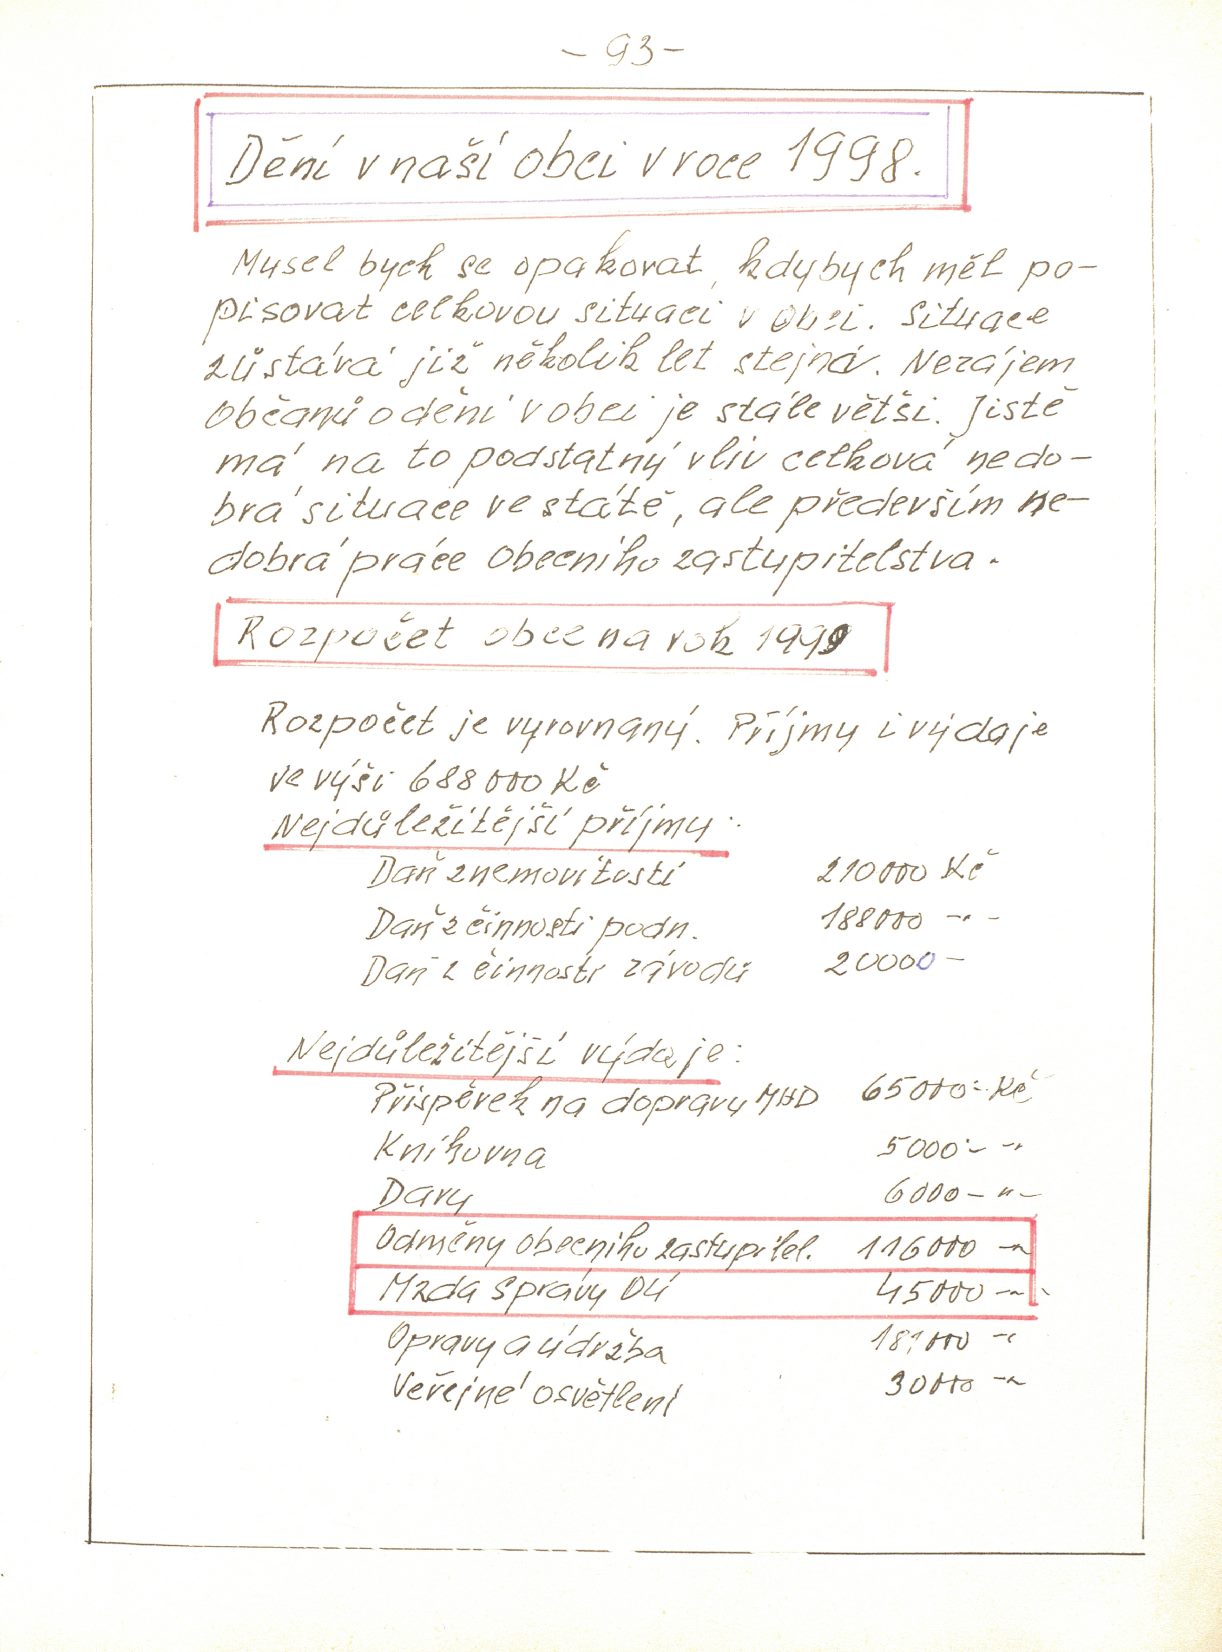 - 93 -
Dění v naší obci v roce 1998.
Musel bych se opakovat, kdybych měl po-
pisovat celkovou situaci v obci. Situace
zůstává již několik let stejná. Nezájem
Občanů o dění v obci je stále větší. Jistě
má na to podstatný vliv celková nedo-
brá situace ve státě, ale především ne-
dobrá práce Obecního zastupitelstva.
Rozpočet obce na rok 1999
Rozpočet je vyrovnaný. Příjmy i výdaje
ve výši 688 000 Kč
Nejdůležitější příjmy:
Daň z nemovitostí 210000 Kč
Daň z činnosti podn. 188000 -"-
Daň z činnosti závodu 20000 -
Nejdůležitější výdaje:
Příspěvek na dopravu MHD 65000.- Kč
Knihovna 5000.- -"
Dary 6000 - "-
Odměny obecního zastupitel. 116000 -"
Mzda správy OÚ 45000 -"-
Opravy a údržba -"
Veřejné osvětlení 30000 -"